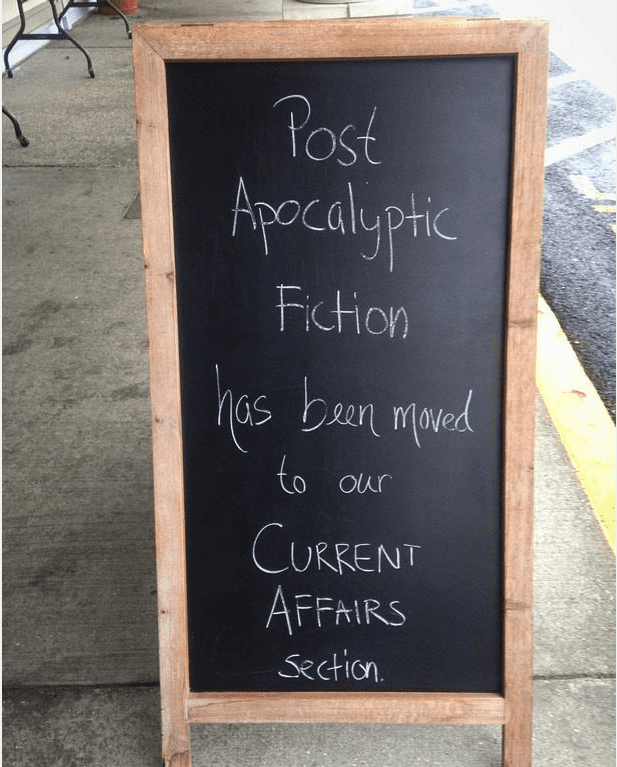 Post
Apocalyptic
Fiction
has been moved
to our
CURRENT
AFFAIRS
section.